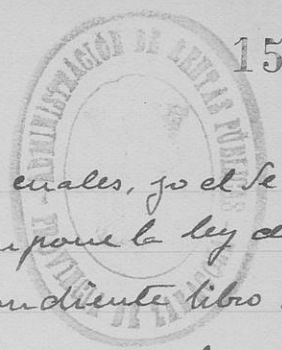 15
ADMINISTRACIÓN DE RENTAS PÚBLICAS
PROVINCIA DE ZARAGOZA
cuales, yo el Se
pone la ley d
ndiente libro